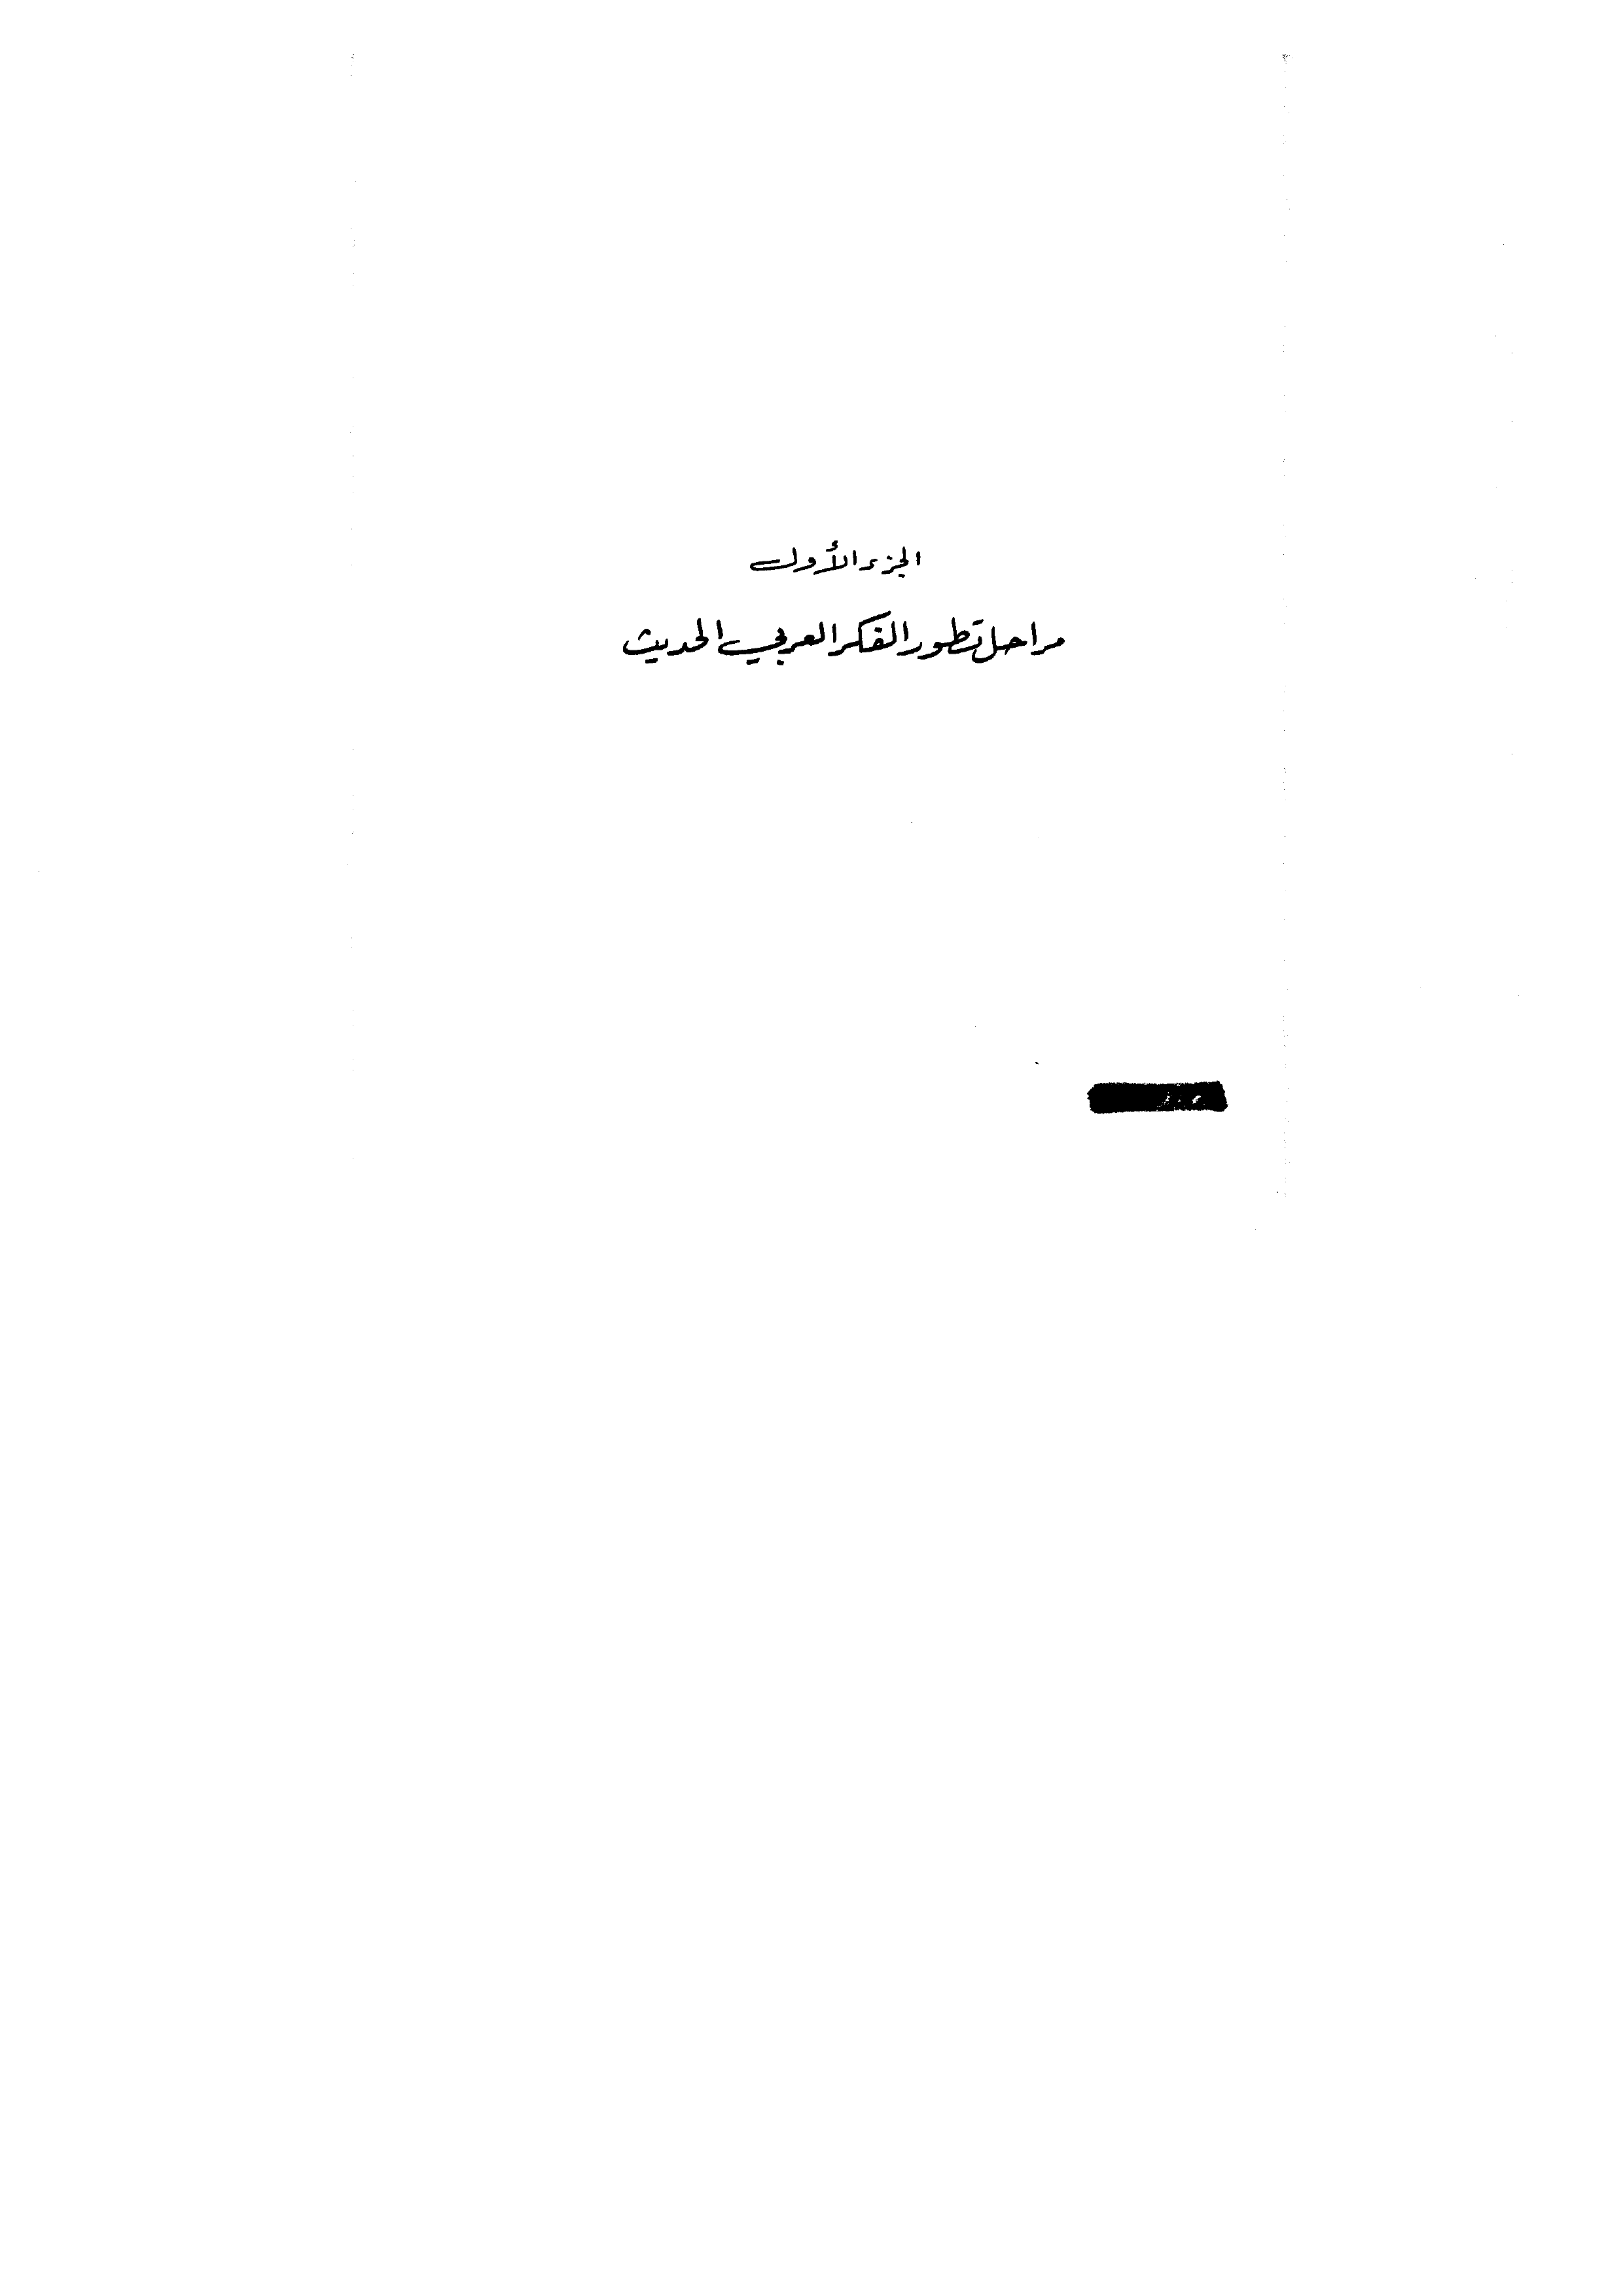 الجزء الأول
مراحل تطور الفكر العربي الحديث